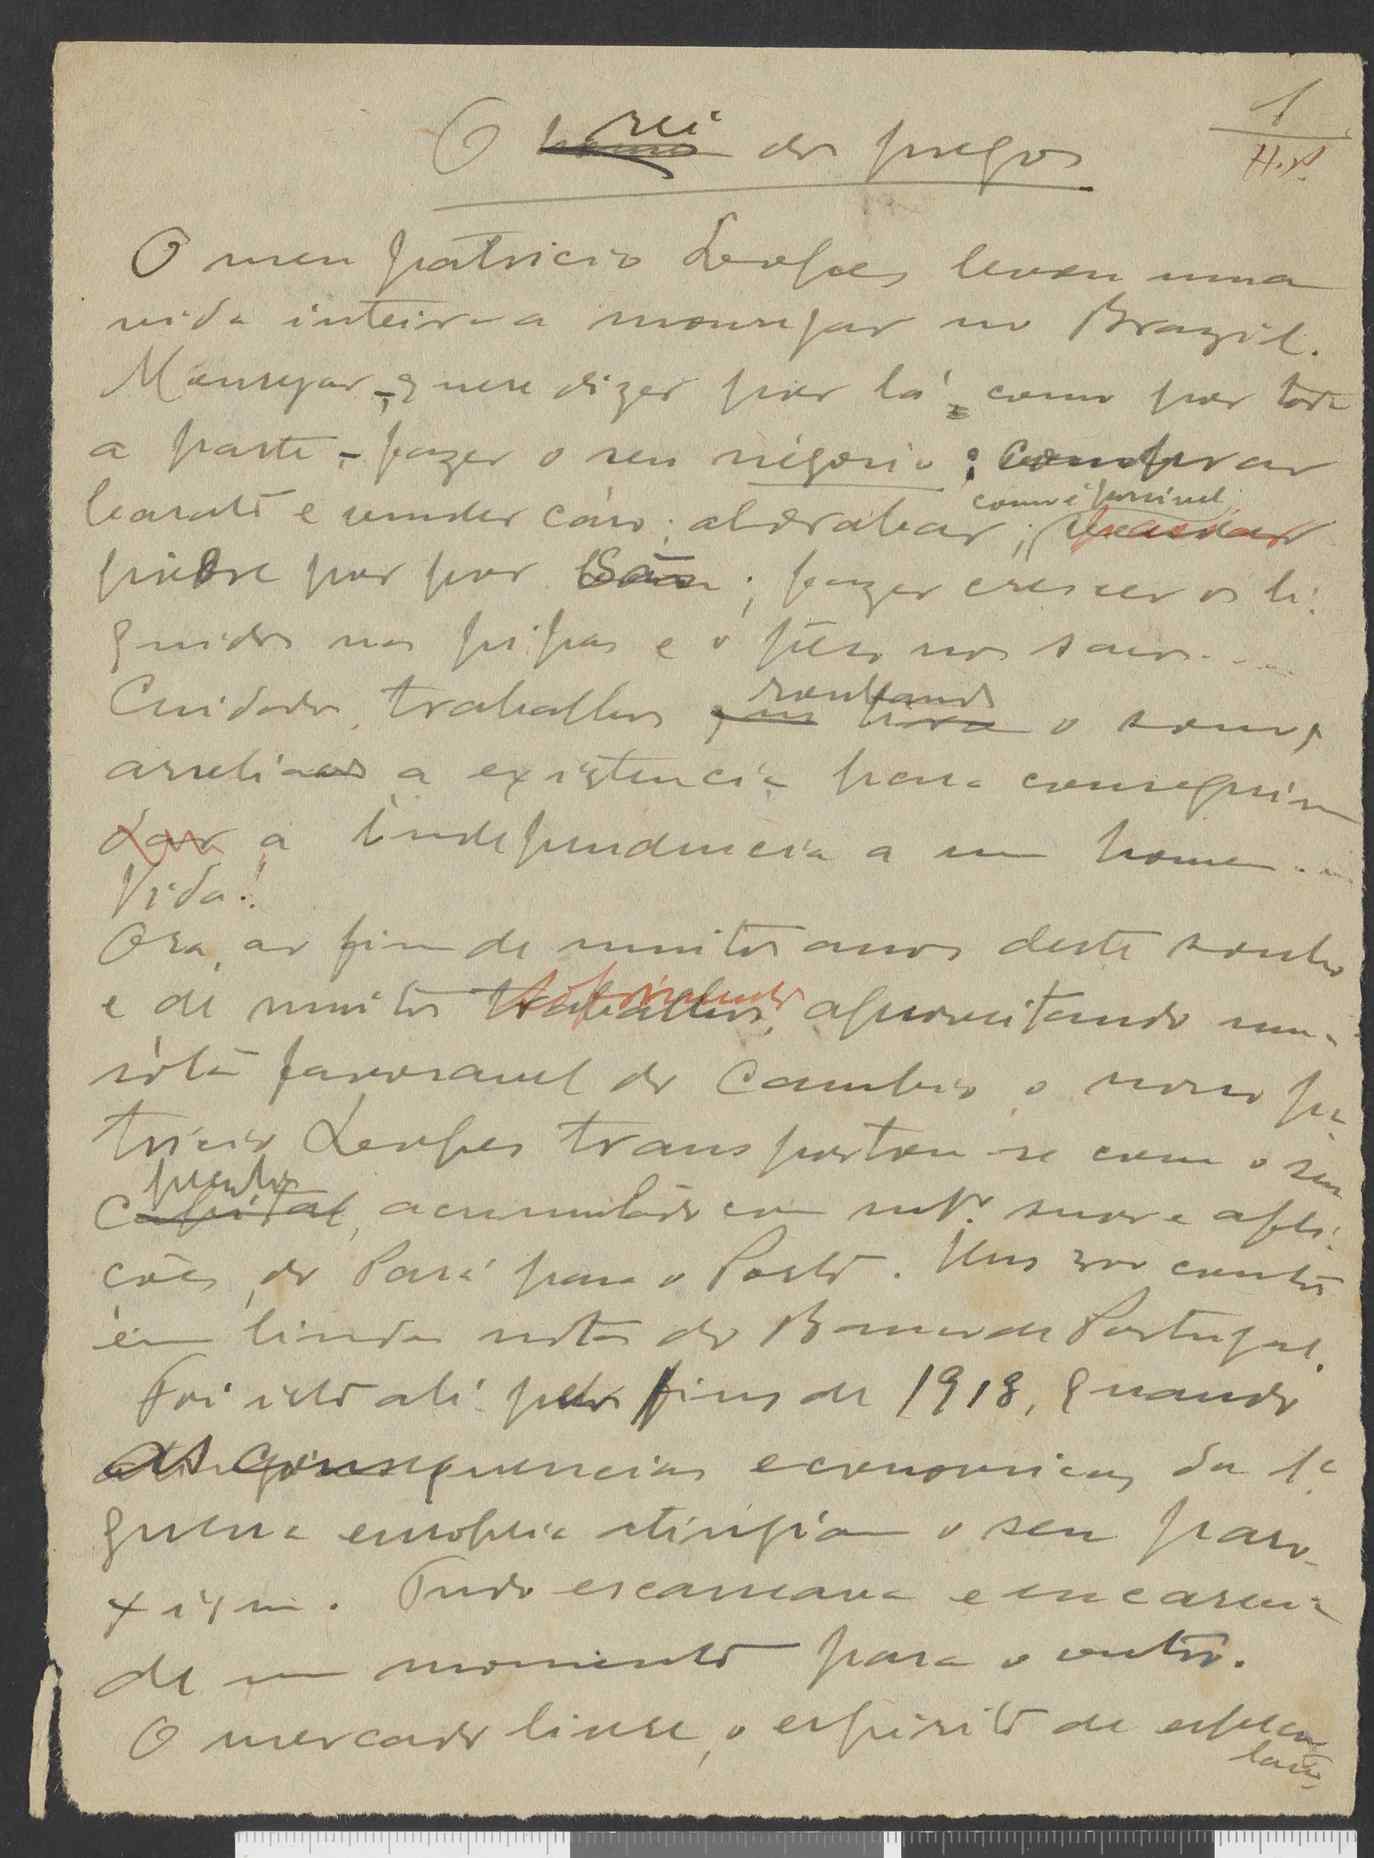 1
H. P.
O homem rei dos pregos
O meu patricio Lopes levou uma
vida inteira a mourejar no Brazil.
Mourejar, - quere dizer por lá, como por toda
a parte, - fazer o seu négocio: comprar
barato e vender cáro; aldrabar; como é possivel
podre por por são; fazer crescer os li-
quidos nas pipas e o pêso nos sacos....
Cuidados, trabalhos, roubando o somno,
arreliando a existencia para conseguir
dar a independencia a um homem....
Vida!
Ora, ao fim de muitos anos deste sonho
e de muitos trabalhos sofrimentos, aproveitando uma
róta favoravel do Cambio, o nosso pa-
tricio Lopes transportou-se com o seu
capital peculio, acumulado com mto. suor e afli-
ções, do Pará para o Porto. Uns 200 contos
em lindas notas do Banco de Portugal.
Foi isto ali pelos fins de 1918, quando
as consequencias economicas da 1ª
guerra europeia atingiam o seu paro-
xismo. Tudo escasseava e encarecia
de um momento para o outro.
O mercado livre, o espirito de especu-
lação,